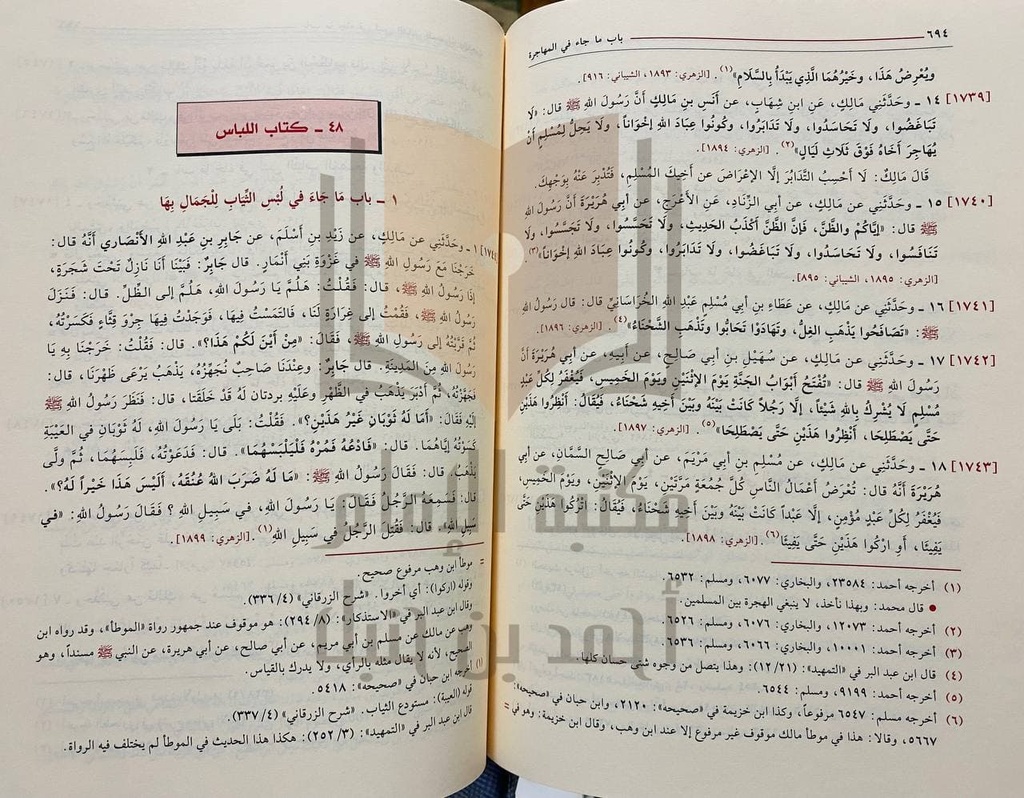 ٦٩٤
باب ما جاء في المهاجرة
ويُعْرِضُ هَذَا، وخَيْرُهُمَا الَّذِي يَبْدَأُ بِالسَّلَامِ»(١). [الزهري: ١٨٩٣، الشيباني: ٩١٦].
[١٧٣٩] ١٤ - وحَدَّثَنِي مالِكٍ، عَن ابنِ شِهَابٍ، عن أنَسِ بنِ مالِكٍ أنَّ رَسُولَ اللهِ ﷺ قال: «لَا
تَبَاغَضُوا، ولَا تَحَاسَدُوا، ولَا تَدَابَرُوا، وكُونُوا عِبَادَ اللهِ إِخْوَاناً، ولَا يَحِلُّ لِمُسْلِمٍ أنْ
يُهَاجِرَ أخَاهُ فَوْقَ ثَلَاثِ لَيَالٍ»(٢). [الزهري: ١٨٩٤].
قَالَ مَالِكٌ: لَا أَحْسِبُ التَّدَابُرَ إلَّا الإعْرَاضَ عن أَخِيكَ المُسْلِمِ، فَتُدْبِرَ عَنْهُ بِوَجْهِكَ.
[١٧٤٠] ١٥ - وحَدَّثَنِي عن مَالِكٍ، عن أبِي الزِّنَادِ، عَنِ الأَعْرَجِ، عن أبِي هُرَيْرَةَ أنَّ رَسُولَ اللهِ
ﷺ قال: «إيَّاكُمْ والظَّنَّ، فَإنَّ الظَّنَّ أكْذَبُ الحَدِيثِ، ولَا تَحَسَّسُوا، ولَا تَجَسَّسُوا، ولَا
تَنَافَسُوا، ولَا تَحَاسَدُوا، ولَا تَبَاغَضُوا، ولَا تَدَابَرُوا، وكُونُوا عِبَادَ اللهِ إخْوَاناً»(٣).
[الزهري: ١٨٩٥، الشيباني: ٨٩٥].
[١٧٤١] ١٦ - وحَدَّثَنِي عن مَالِكٍ، عن عَطَاءِ بنِ أبِي مُسْلِمٍ عَبْدِ اللهِ الخُرَاسَانِيِّ قال: قال رَسُولُ اللهِ
ﷺ: «تَصَافَحُوا يَذْهَبِ الغِلُّ، وتَهَادَوْا تَحَابُّوا وتَذْهَبِ الشَّحْنَاءُ»(٤). [الزهري: ١٨٩٦].
[١٧٤٢] ١٧ - وحَدَّثَنِي عن مَالِكٍ، عن سُهَيْلِ بنِ أبِي صَالِحٍ، عن أبِيهِ، عن أبِي هُرَيْرَةَ أنَّ
رَسُولَ اللهِ ﷺ قال: «تُفْتَحُ أبْوَابُ الجَنَّةِ يَوْمَ الإثْنَيْنِ ويَوْمَ الخَمِيسِ، فَيُغْفَرُ لِكُلِّ عَبْدٍ
مُسْلِمٍ لَا يُشْرِكُ بِاللهِ شَيْئاً، إلَّا رَجُلاً كَانَتْ بَيْنَهُ وبَيْنَ أخِيهِ شَحْنَاءُ، فَيُقَالُ: أنْظِرُوا هَذَيْنِ
حَتَّى يَصْطَلِحَا، أنْظِرُوا هَذَيْنِ حَتَّى يَصْطَلِحَا»(٥). [الزهري: ١٨٩٧].
[١٧٤٣] ١٨ - وحَدَّثَنِي عن مَالِكٍ، عن مُسْلِمِ بنِ أبِي مَرْيَمَ، عن أبِي صَالِحٍ السَّمَّانِ، عن أبِي
هُرَيْرَةَ أنَّهُ قال: تُعْرَضُ أعْمَالُ النَّاسِ كُلَّ جُمُعَةٍ مَرَّتَيْنِ، يَوْمَ الإثْنَيْنِ، ويَوْمَ الخَمِيسِ،
فَيُغْفَرُ لِكُلِّ عَبْدٍ مُؤْمِنٍ، إلَّا عَبْداً كَانَتْ بَيْنَهُ وبَيْنَ أخِيهِ شَحْنَاءُ، فَيُقَالُ: اتْرُكُوا هَذَيْنِ حَتَّى
يَفِيئَا، أوِ ارْكُوا هَذَيْنِ حَتَّى يَفِيئَا(٦). [الزهري: ١٨٩٨].
(١) أخرجه أحمد: ٢٣٥٨٤، والبخاري: ٦٠٧٧، ومسلم: ٦٥٣٢.
• قال محمد: وبهذا نأخذ، لا ينبغي الهجرة بين المسلمين.
(٢) أخرجه أحمد: ١٢٠٧٣، والبخاري: ٦٠٧٦، ومسلم: ٦٥٢٦.
(٣) أخرجه أحمد: ١٠٠٠١، والبخاري: ٦٠٦٦، ومسلم: ٦٥٣٦.
(٤) قال ابن عبد البر في «التمهيد»: (١٢/٢١): وهذا يتصل من وجوه شتى حسان كلها.
(٥) أخرجه أحمد: ٩١٩٩، ومسلم: ٦٥٤٤.
(٦) أخرجه مسلم: ٦٥٤٧ مرفوعاً، وكذا ابن خزيمة في «صحيحه»: ٢١٢٠، وابن حبان في «صحيحه»:
٥٦٦٧، وقالا: هذا في موطأ مالك موقوف غير مرفوع إلا عند ابن وهب، وقال ابن خزيمة: وهو في =
٤٨ - كتاب اللباس
١ - باب مَا جَاءَ في لُبْسِ الثِّيَابِ لِلْجَمَالِ بِهَا
١ - وحَدَّثَنِي عن مَالِكٍ، عن زَيْدِ بنِ أسْلَمَ، عن جَابِرِ بنِ عَبْدِ اللهِ الأنْصَارِي أنَّهُ قال:
خَرَجْنَا مَعَ رَسُولِ اللهِ ﷺ في غَزْوَةِ بَنِي أنْمَارٍ. قال جَابِرٌ: فَبَيْنَا أنَا نَازِلٌ تَحْتَ شَجَرَةٍ،
إذَا رَسُولُ اللهِ ﷺ، قال: فَقُلْتُ: هَلُمَّ يَا رَسُولَ اللهِ، هَلُمَّ إلى الظِّلِّ. قال: فَنَزَلَ
رَسُولُ اللهِ ﷺ، فَقُمْتُ إلى غِرَارَةٍ لَنَا، فَالتَمَسْتُ فِيهَا، فَوَجَدْتُ فِيهَا جِرْوَ قِثَّاءٍ فَكَسَرْتُهُ،
ثُمَّ قَرَّبْتُهُ إلى رَسُولِ اللهِ ﷺ، فَقَالَ: «مِنْ أيْنَ لَكُمْ هَذَا؟». قال: فَقُلْتُ: خَرَجْنَا بِهِ يَا
رَسُولَ اللهِ مِنَ المَدِينَةِ. قال جَابِرٌ: وعِنْدَنَا صَاحِبٌ نُجَهِّزُهُ، يَذْهَبُ يَرْعَى ظَهْرَنَا، قال:
فَجَهَّزْتُهُ، ثُمَّ أدْبَرَ يَذْهَبُ في الظَّهْرِ وعَلَيْهِ بردتان لَهُ قَدْ خَلَقَتا، قال: فَنَظَرَ رَسُولُ اللهِ ﷺ
إلَيْهِ فَقَالَ: «أمَا لَهُ ثَوْبَانِ غَيْرُ هَذَيْنِ؟». فَقُلْتُ: بَلَى يَا رَسُولَ اللهِ، لَهُ ثَوْبَانِ في العَيْبَةِ
كَسَوْتُهُ إيَّاهُمَا. قال: «فَادْعُهُ فَمُرْهُ فَلْيَلْبَسْهُمَا». قال: فَدَعَوْتُهُ، فَلَبِسَهُمَا، ثُمَّ ولَّى
يَذْهَبُ. قال: فَقَالَ رَسُولُ اللهِ ﷺ: «مَا لَهُ ضَرَبَ اللهُ عُنُقَهُ، ألَيْسَ هَذَا خَيْراً لَهُ؟».
قال: فَسَمِعَهُ الرَّجُلُ فَقَالَ: يَا رَسُولَ اللهِ، في سَبِيلِ اللهِ ؟ فَقَالَ رَسُولُ اللهِ: «في
سَبِيلِ اللهِ». قال: فَقُتِلَ الرَّجُلُ في سَبِيلِ اللهِ(١). [الزهري: ١٨٩٩].
= موطأ ابن وهب مرفوع صحيح.
وقوله (اركوا): أي أخروا. «شرح الزرقاني» (٣٣٦/٤).
وقال ابن عبد البر في «الاستذكار»: (٢٩٤/٨): هو موقوف عند جمهور رواة «الموطأ»، وقد رواه ابن
وهب عن مالك عن مسلم بن أبي مريم، عن أبي صالح، عن أبي هريرة، عن النبي ﷺ مسنداً، وهو
الصحيح، لأنه لا يقال مثله بالرأي، ولا يدرك بالقياس.
(١) أخرجه ابن حبان في «صحيحه»: ٥٤١٨.
قوله: (العيبة): مستودع الثياب. «شرح الزرقاني» (٣٣٧/٤).
قال ابن عبد البر في «التمهيد»: (٢٥٢/٣): هكذا هذا الحديث في الموطأ لم يختلف فيه الرواة.
مكتبة الإمام
أحمد بن تيمية